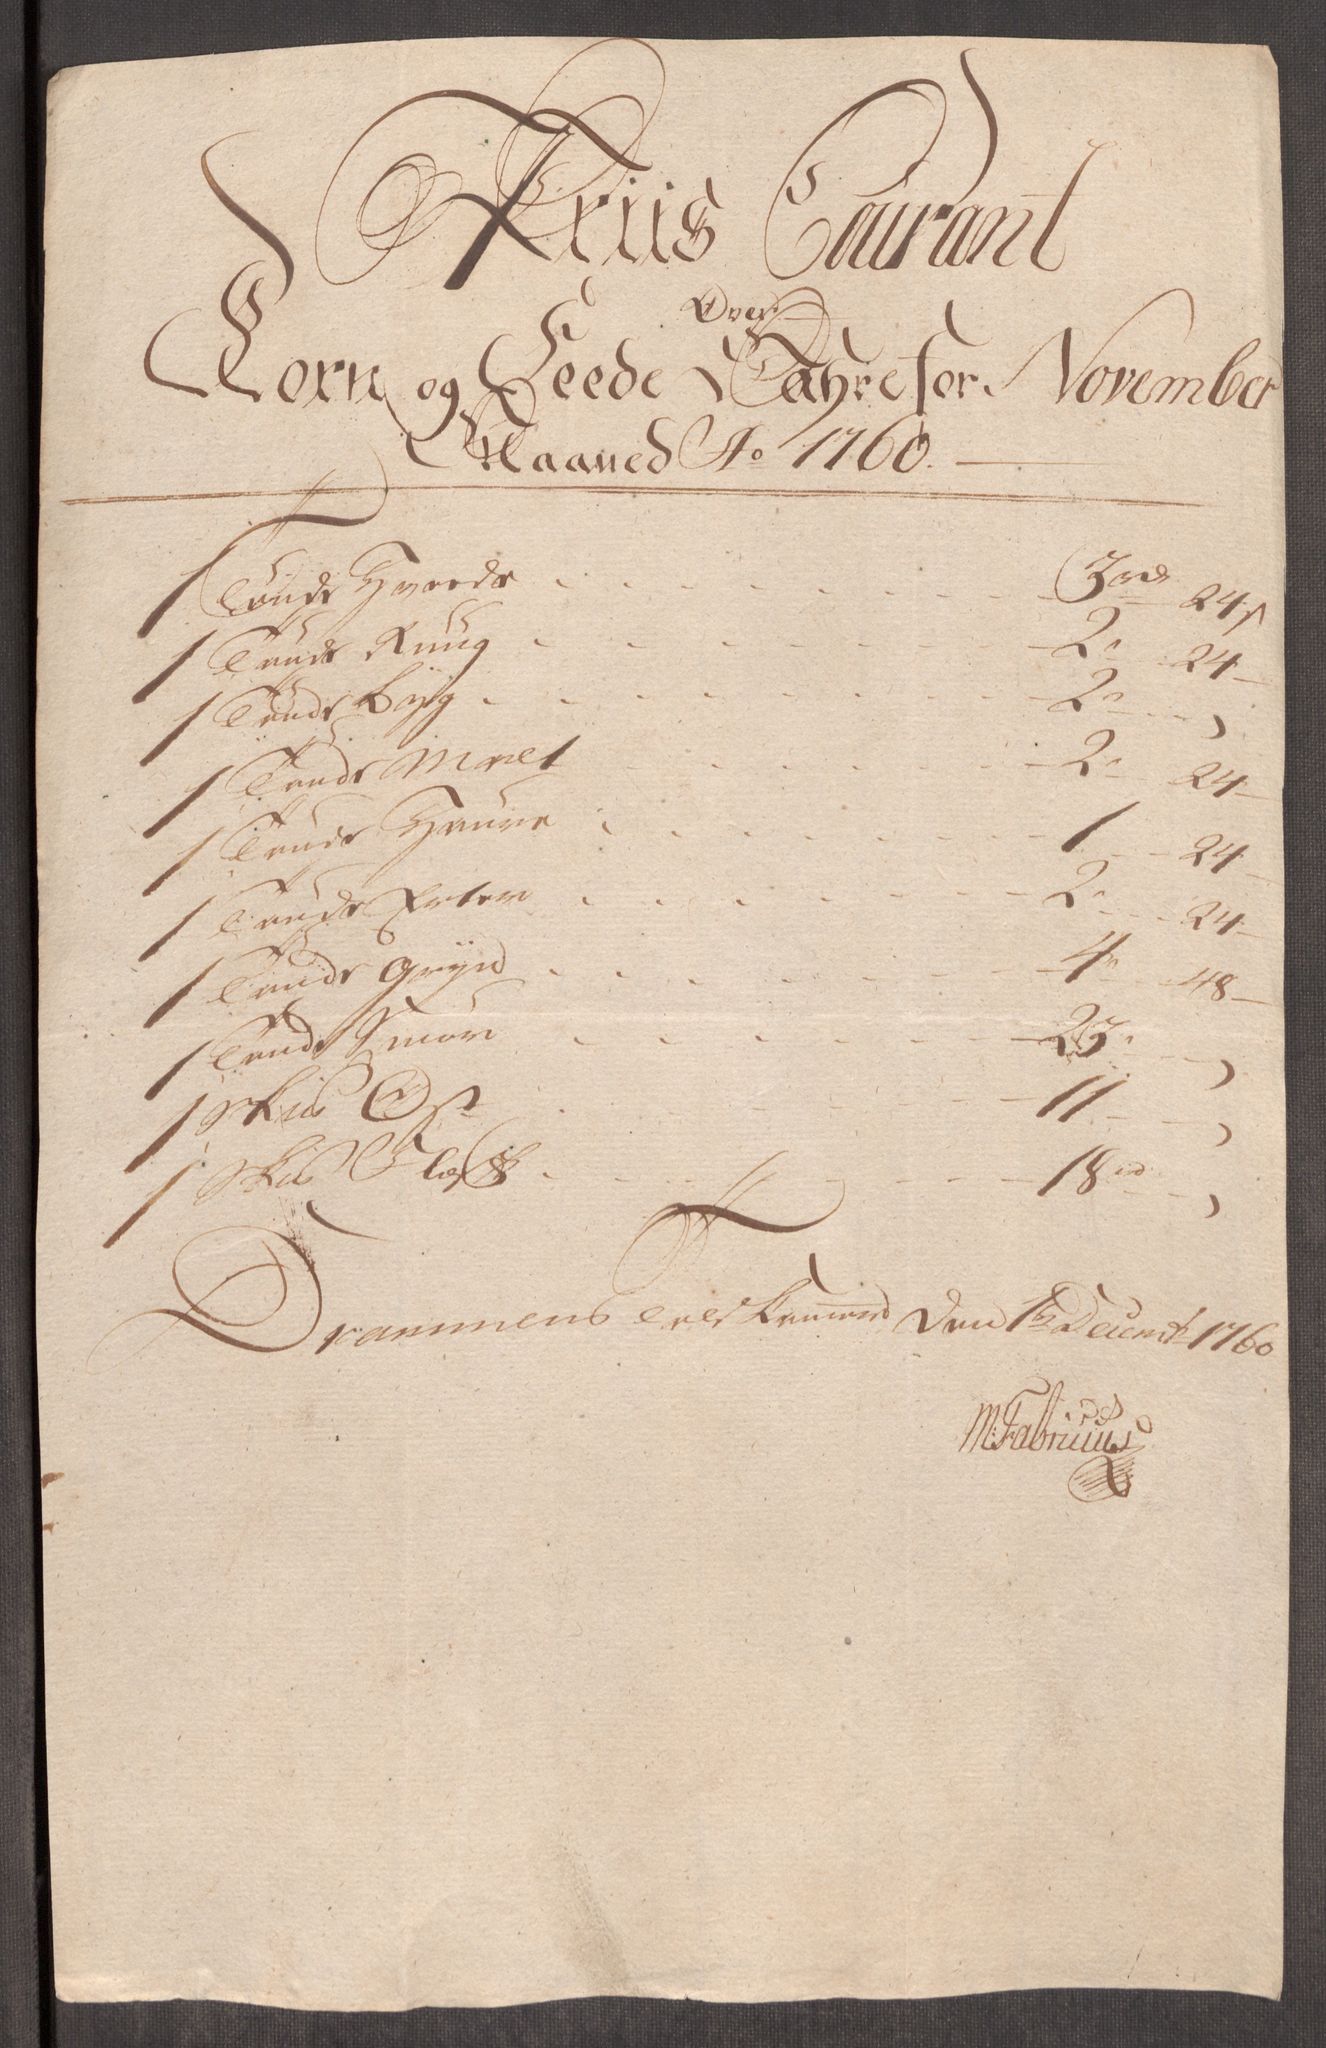 Priis Courant
Over
Korn og Feede Vahre for November
Maaned Ao 1760.
1 Tønde Hveede 3 rd 24 s
1 Tønde Rüug 2 " 24 —
1 Tønde Byg 2 " "
1 Tønde Malt 2 " 24 —
1 Tønde Haure 1 24 —
1 Tønde Erter 2 " 24 —
1 Tønde Gryn 4 " 48 —
1 Tønde Smør 23 " "
1 skud Ost 11 "
1 skud Flæsk 18 rd "
Drammens Told Kammer den 1te Decembr 1760
MFabricius